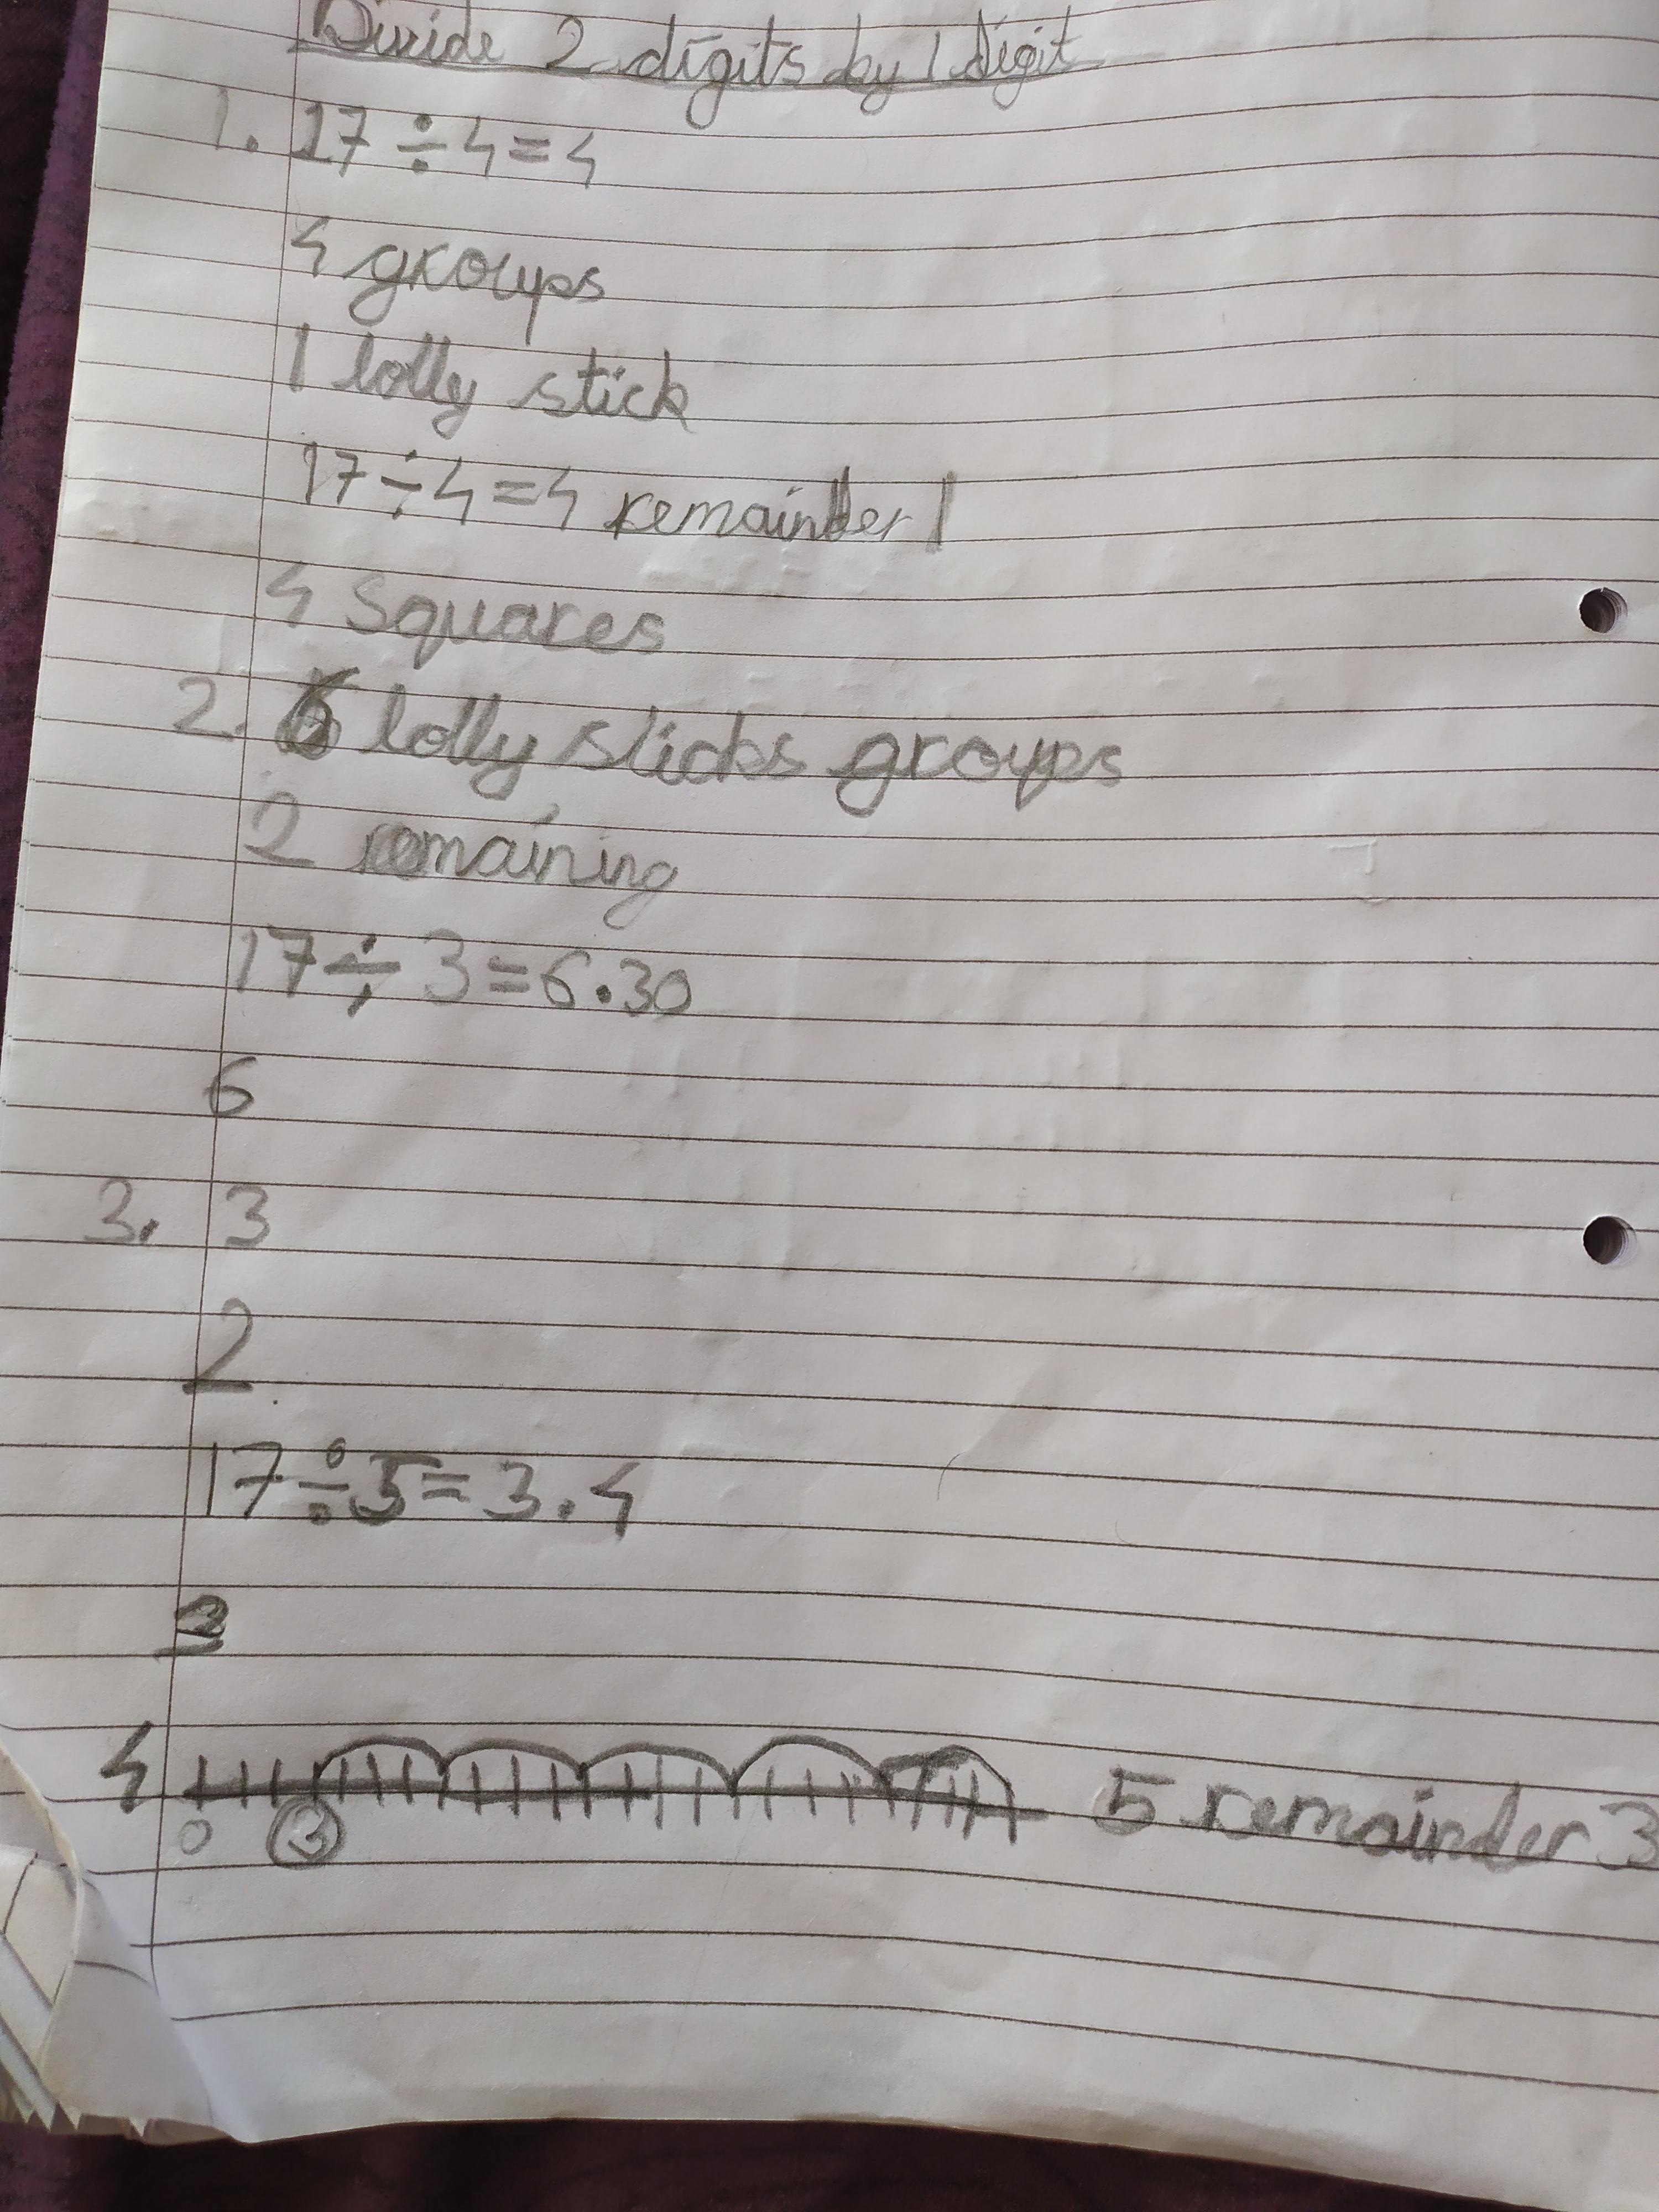 Divide 2 digits by 1 digit
1. 17 ÷ 4 = 4
4 groups
1 lolly stick
17 ÷ 4 = 4 remainder 1
4 squares
2. 6 lolly sticks groups
2 remaining
17 ÷ 3 = 6.30
6
3. 3
2
17 ÷ 5 = 3.4
4 5 remainder 3
0 3